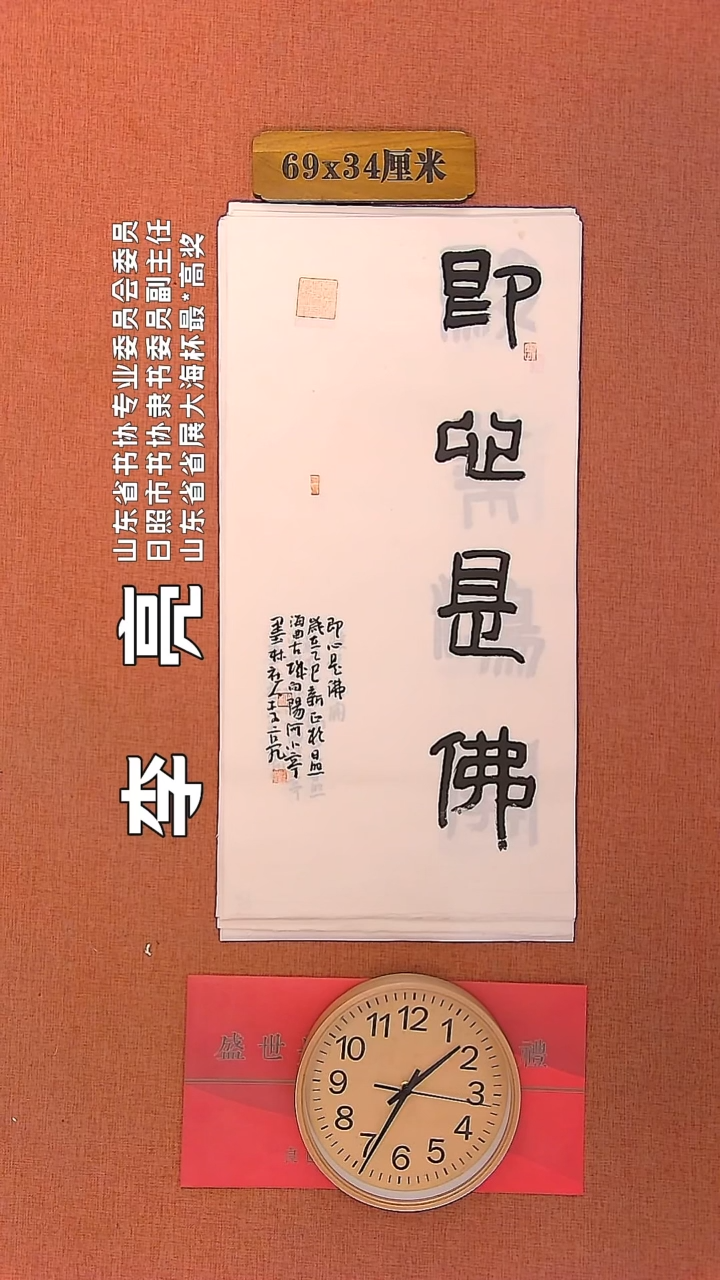 69x34厘米
即心是佛
即心是佛
歲在乙巳新正於日照
海曲古城向陽河小亭
墨林社人李亮
山东省书协专业委员会委员
日照市书协隶书委员副主任
山东省省展大海杯最*高奖
李亮
盛世
禮
12
1
2
3
4
5
6
7
8
9
10
11